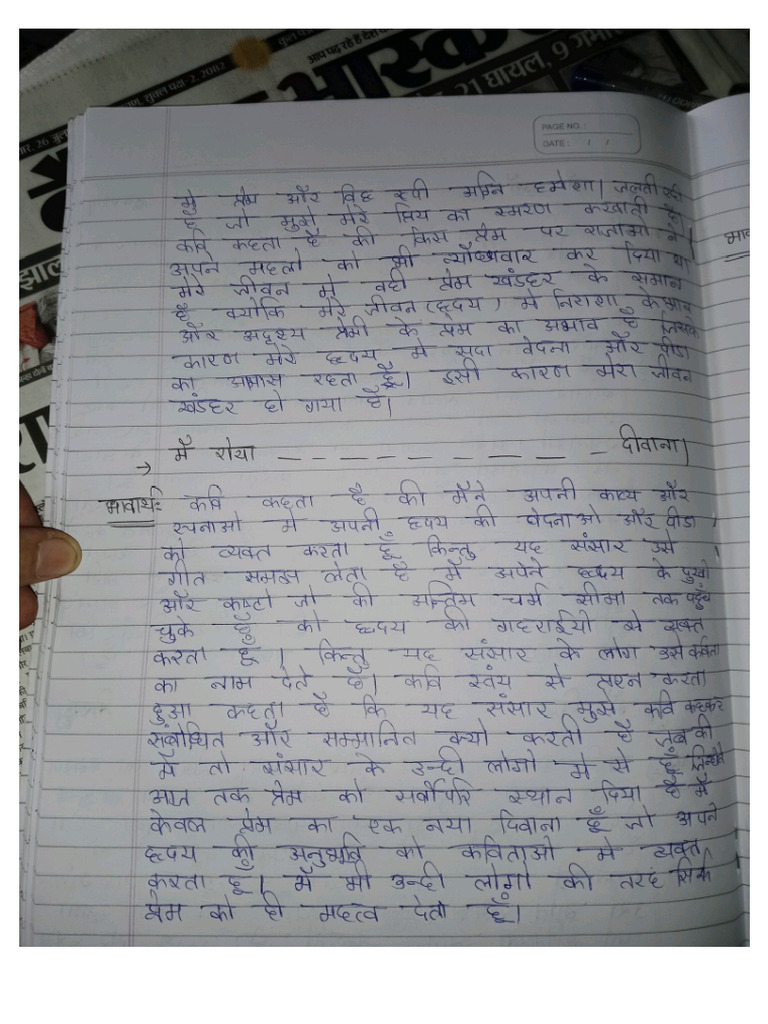 आप पढ़ रहे हैं देश
शुक्ल पक्ष-2, 2082
भास्कर
21 घायल, 9 गंभीर
PAGE NO. :
DATE : / /
मे प्रेम और विरह रूपी अग्नि हमेशा जलती रही
है जो मुझे मेरे प्रिय का स्मरण करवाती है।
कवि कहता है की किस प्रेम पर राजाओ ने
अपने महलो को भी न्यौछावार कर दिया था
मेरे जीवन मे वही प्रेम खंडहर के समान
है क्योकि मेरे जीवन (हृदय) मे निराशा के भाव
और अदृश्य प्रेमी के प्रेम का अभाव है जिसके
कारण मेरे हृदय मे सदा वेदना और पीडा
का आभास रहता है। इसी कारण मेरा जीवन
खंडहर हो गया है।
मैं रोया _ _ _ _ _ _ _ _ _ _ दीवाना।
→
भावार्थ: कवि कहता है की मैंने अपनी काव्य और
रचनाओ मे अपनी हृदय की वेदनाओ और पीडा
को व्यक्त करता हूँ किन्तु यह संसार उसे
गीत समझ लेता है मैं अपने हृदय के दुखो
और कष्टो जो की अन्तिम चर्म सीमा तक पहुँच
चुके हूँ को हृदय की गहराईयो से व्यक्त
करता हूँ। किन्तु यह संसार के लोग उसे कविता
का नाम देते है। कवि स्वंय से प्रश्न करता
हुआ कहता है कि यह संसार मुझे कवि कहकर
संबोधित और सम्मानित क्यो करती है जब की
मैं तो संसार के उन्ही लोगो मे से हूँ जिन्होने
आज तक प्रेम को सर्वोपरि स्थान दिया है मैं
केवल प्रेम का एक नया दिवाना हूँ जो अपने
हृदय की अनुभूति को कविताओ मे व्यक्त
करता हूँ। मैं भी उन्ही लोगो की तरह सिर्फ
प्रेम को ही महत्व देता हूँ।